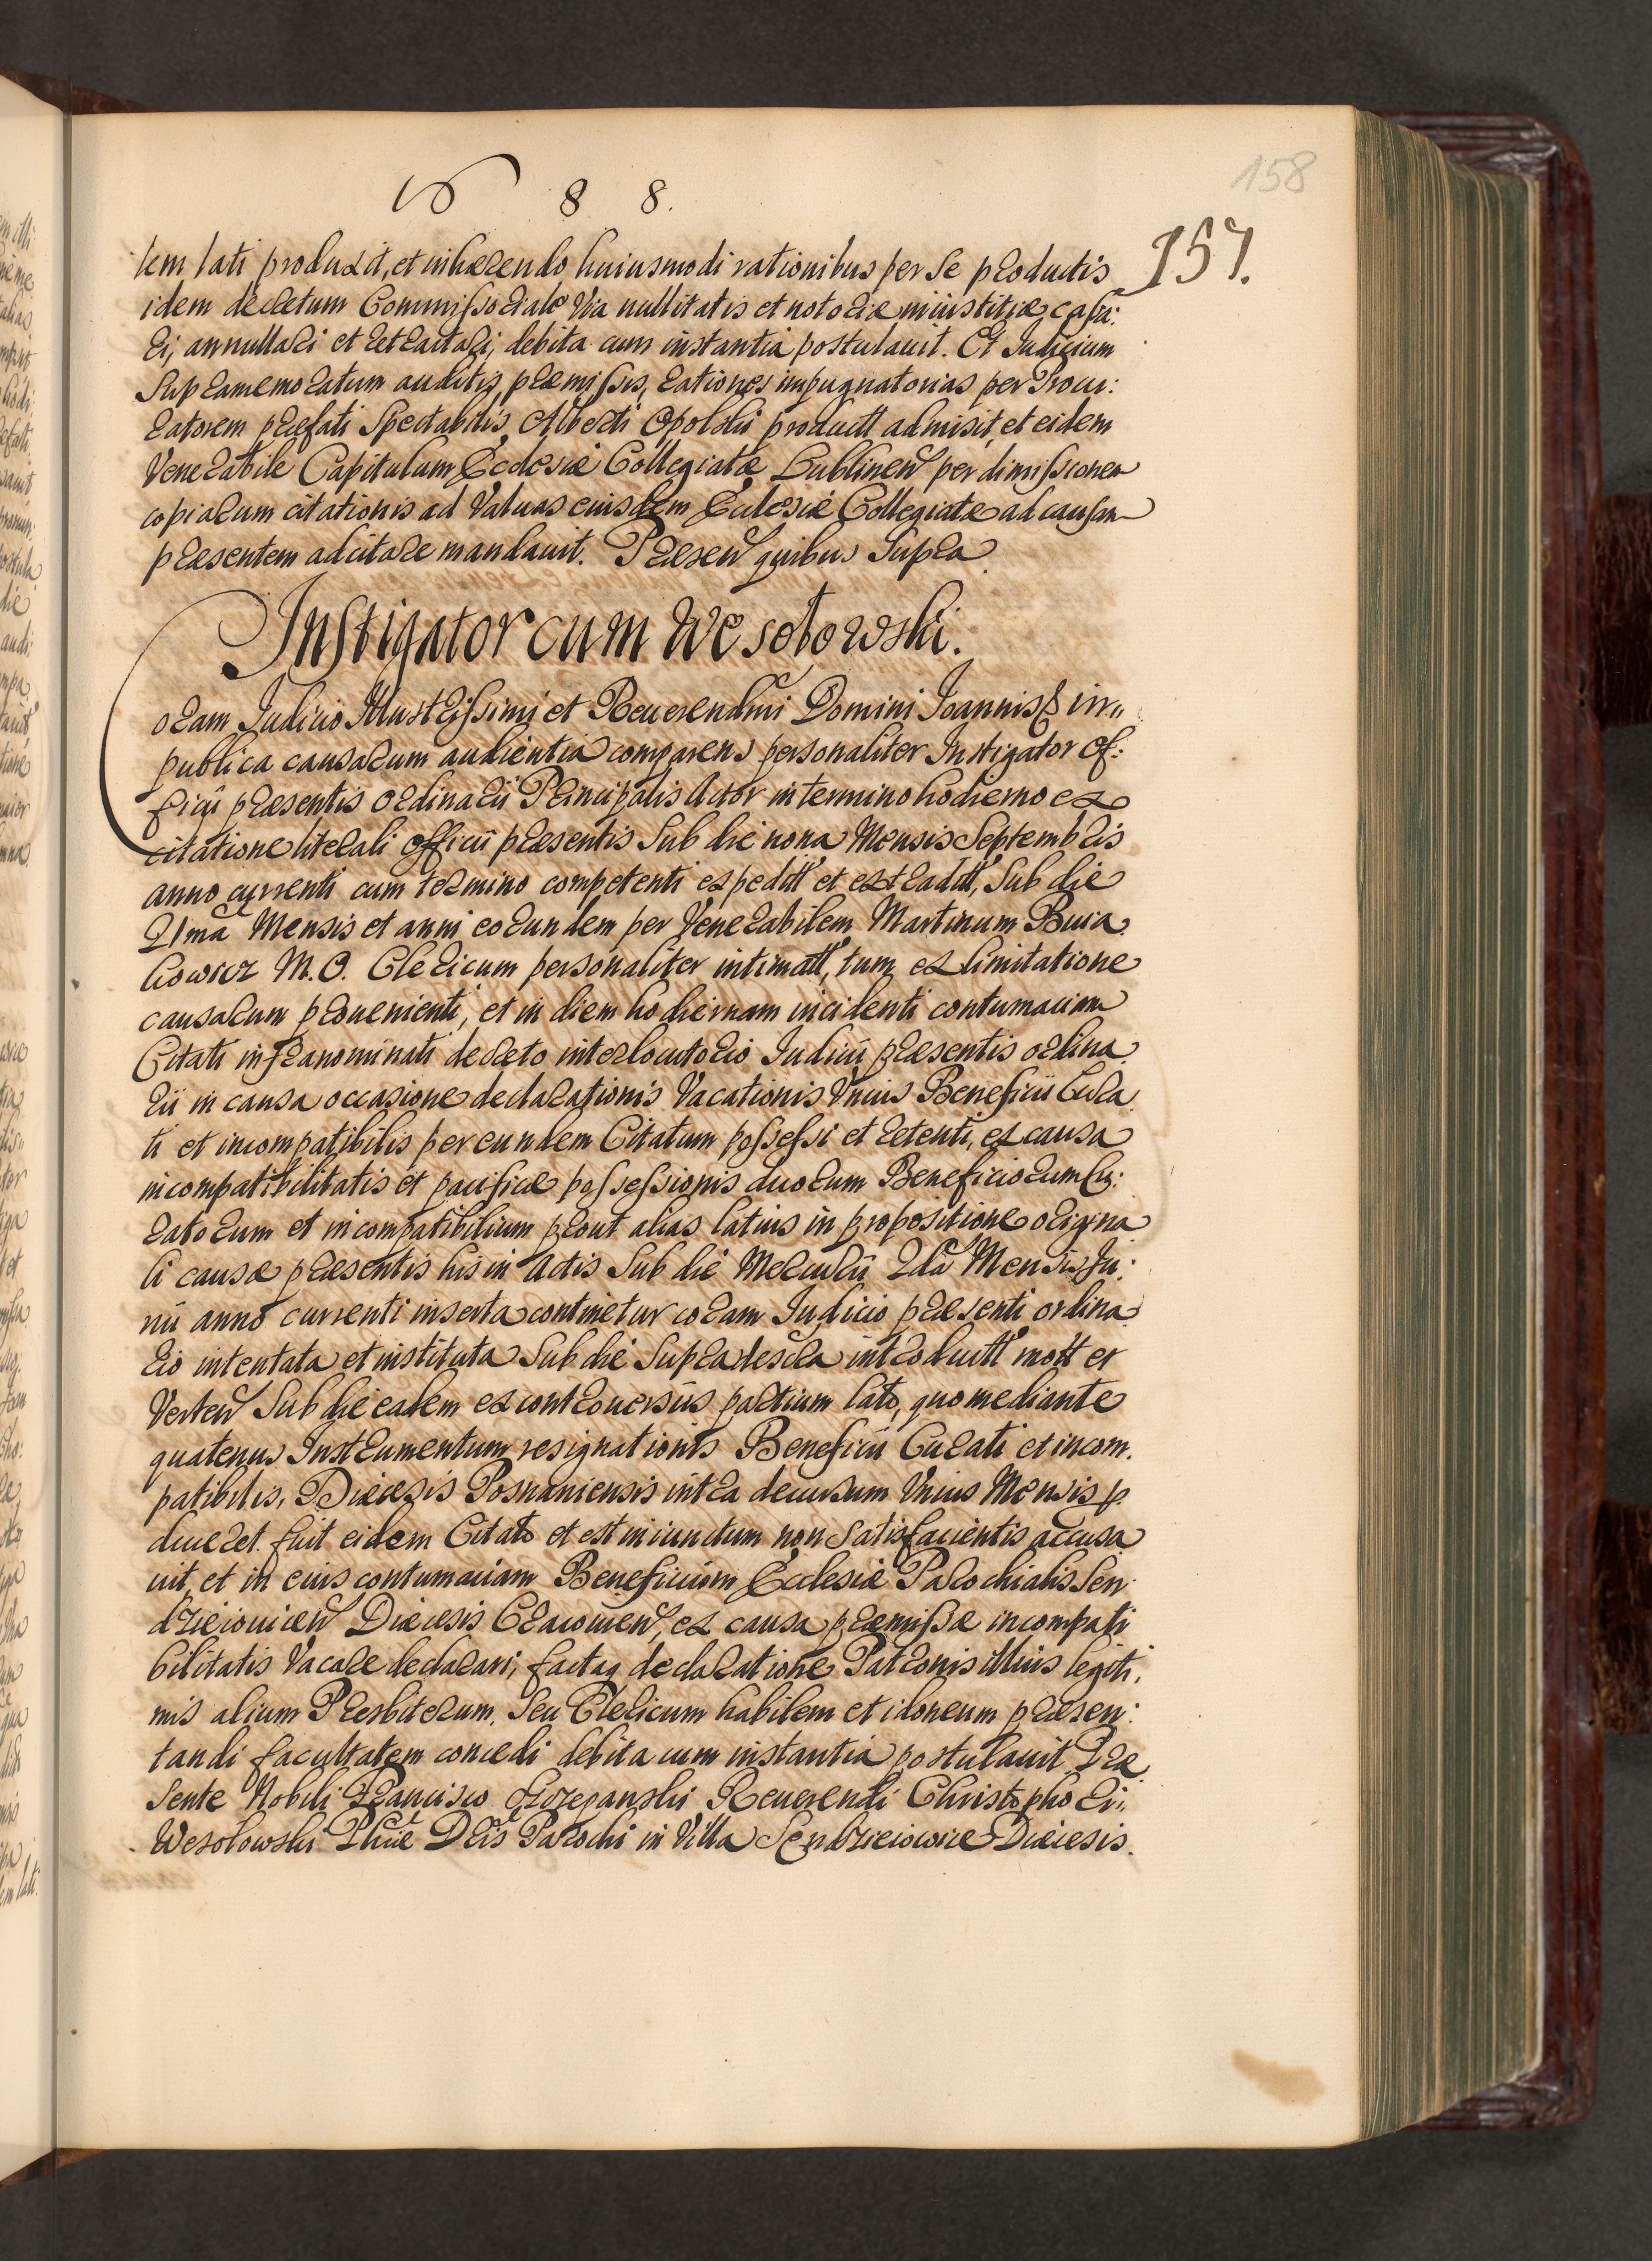 158
16 8 8.
157.
dem lati produxit, et inhærendo huiusmodi rationibus per se productis
idem decretum Commissoriale Via nullitatis et notoriæ iniustitiæ cassa:
ri, annullari et retractari, debita cum instantia postulauit. Et Iudicium
Supramemoratum auditis præmissis, rationes impugnatorias per Procu:
ratorem præfati Spectabilis Alberti Opolski productt admisit, et eidem
Venerabile Capitulum Ecclesiæ Collegiatæ Lublinen per dimissionem
copiarum citationis ad Valuas eiusdem Ecclesiæ Collegiatæ ad causam
præsentem adcitare mandauit. Præsen quibus Supra
Instigator cum Wesołowski.
Coram Iudicio Illustrissimi et Reuerendmi Domini Ioannis in
publica causarum audientia comparens personaliter Instigator Of:
ficij præsentis ordinarii Principalis Actor in termino hodierno ex
citatione literali officii præsentis Sub die nona Mensis Septembris
anno currenti cum termino competenti expeditt et extraditt, Sub die
21ma Mensis et anni eorundem per Venerabilem Martinum Buia
kowicz M. O. Clericum personaliter intimatt, tum ex limitatione
causarum proueniente, et in diem hodiernam incidenti contumaciam
Citati infranominati decreto interlocutorio Iudicii præsentis ordina
rii in causa occasione declarationis Vacationis Vnius Beneficii Cura
ti et incompatibilis per eundem Citatum possessi et retenti, ex causa
incompatibilitatis et pacificæ possessionis duorum Beneficiorum Cu:
ratorum et incompatibilium prout alias latius in propositione origina
li causæ præsentis his in Actis Sub die Mercurii 2da Mensis Iu:
nii anno currenti inserta continetur coram Iudicio præsenti ordina
rio intentata et instituta Sub die Supradescra introductt mott et
Verten Sub die eadem ex controuersiis partium lato, quo mediante
quatenus Instrumentum resignationis Beneficii Curati et incom.
patibilis, Diæcesis Posnaniensis intra decursum Vnius Mensis p
duceret fuit eidem Citato et est iniunctum non Satisfacientis accusa
uit, et in eius contumaciam Beneficium Ecclesiæ Parochialis Sen
dzieiouicen Diæcesis Cracouien, ex causa præmissæ incompati
bilitatis Vacare declarari, factaq declaratione Patronis illius legiti,
mis alium Presbiterum, Seu Clericum habilem et idoneum præsen:
tandi facultatem concedi debita cum instantia postulauit. Præ
sente Nobili Francisco Reuerendi Christophori
Wesołowski Parochi in Villa Sendzieiowice Diæcesis.